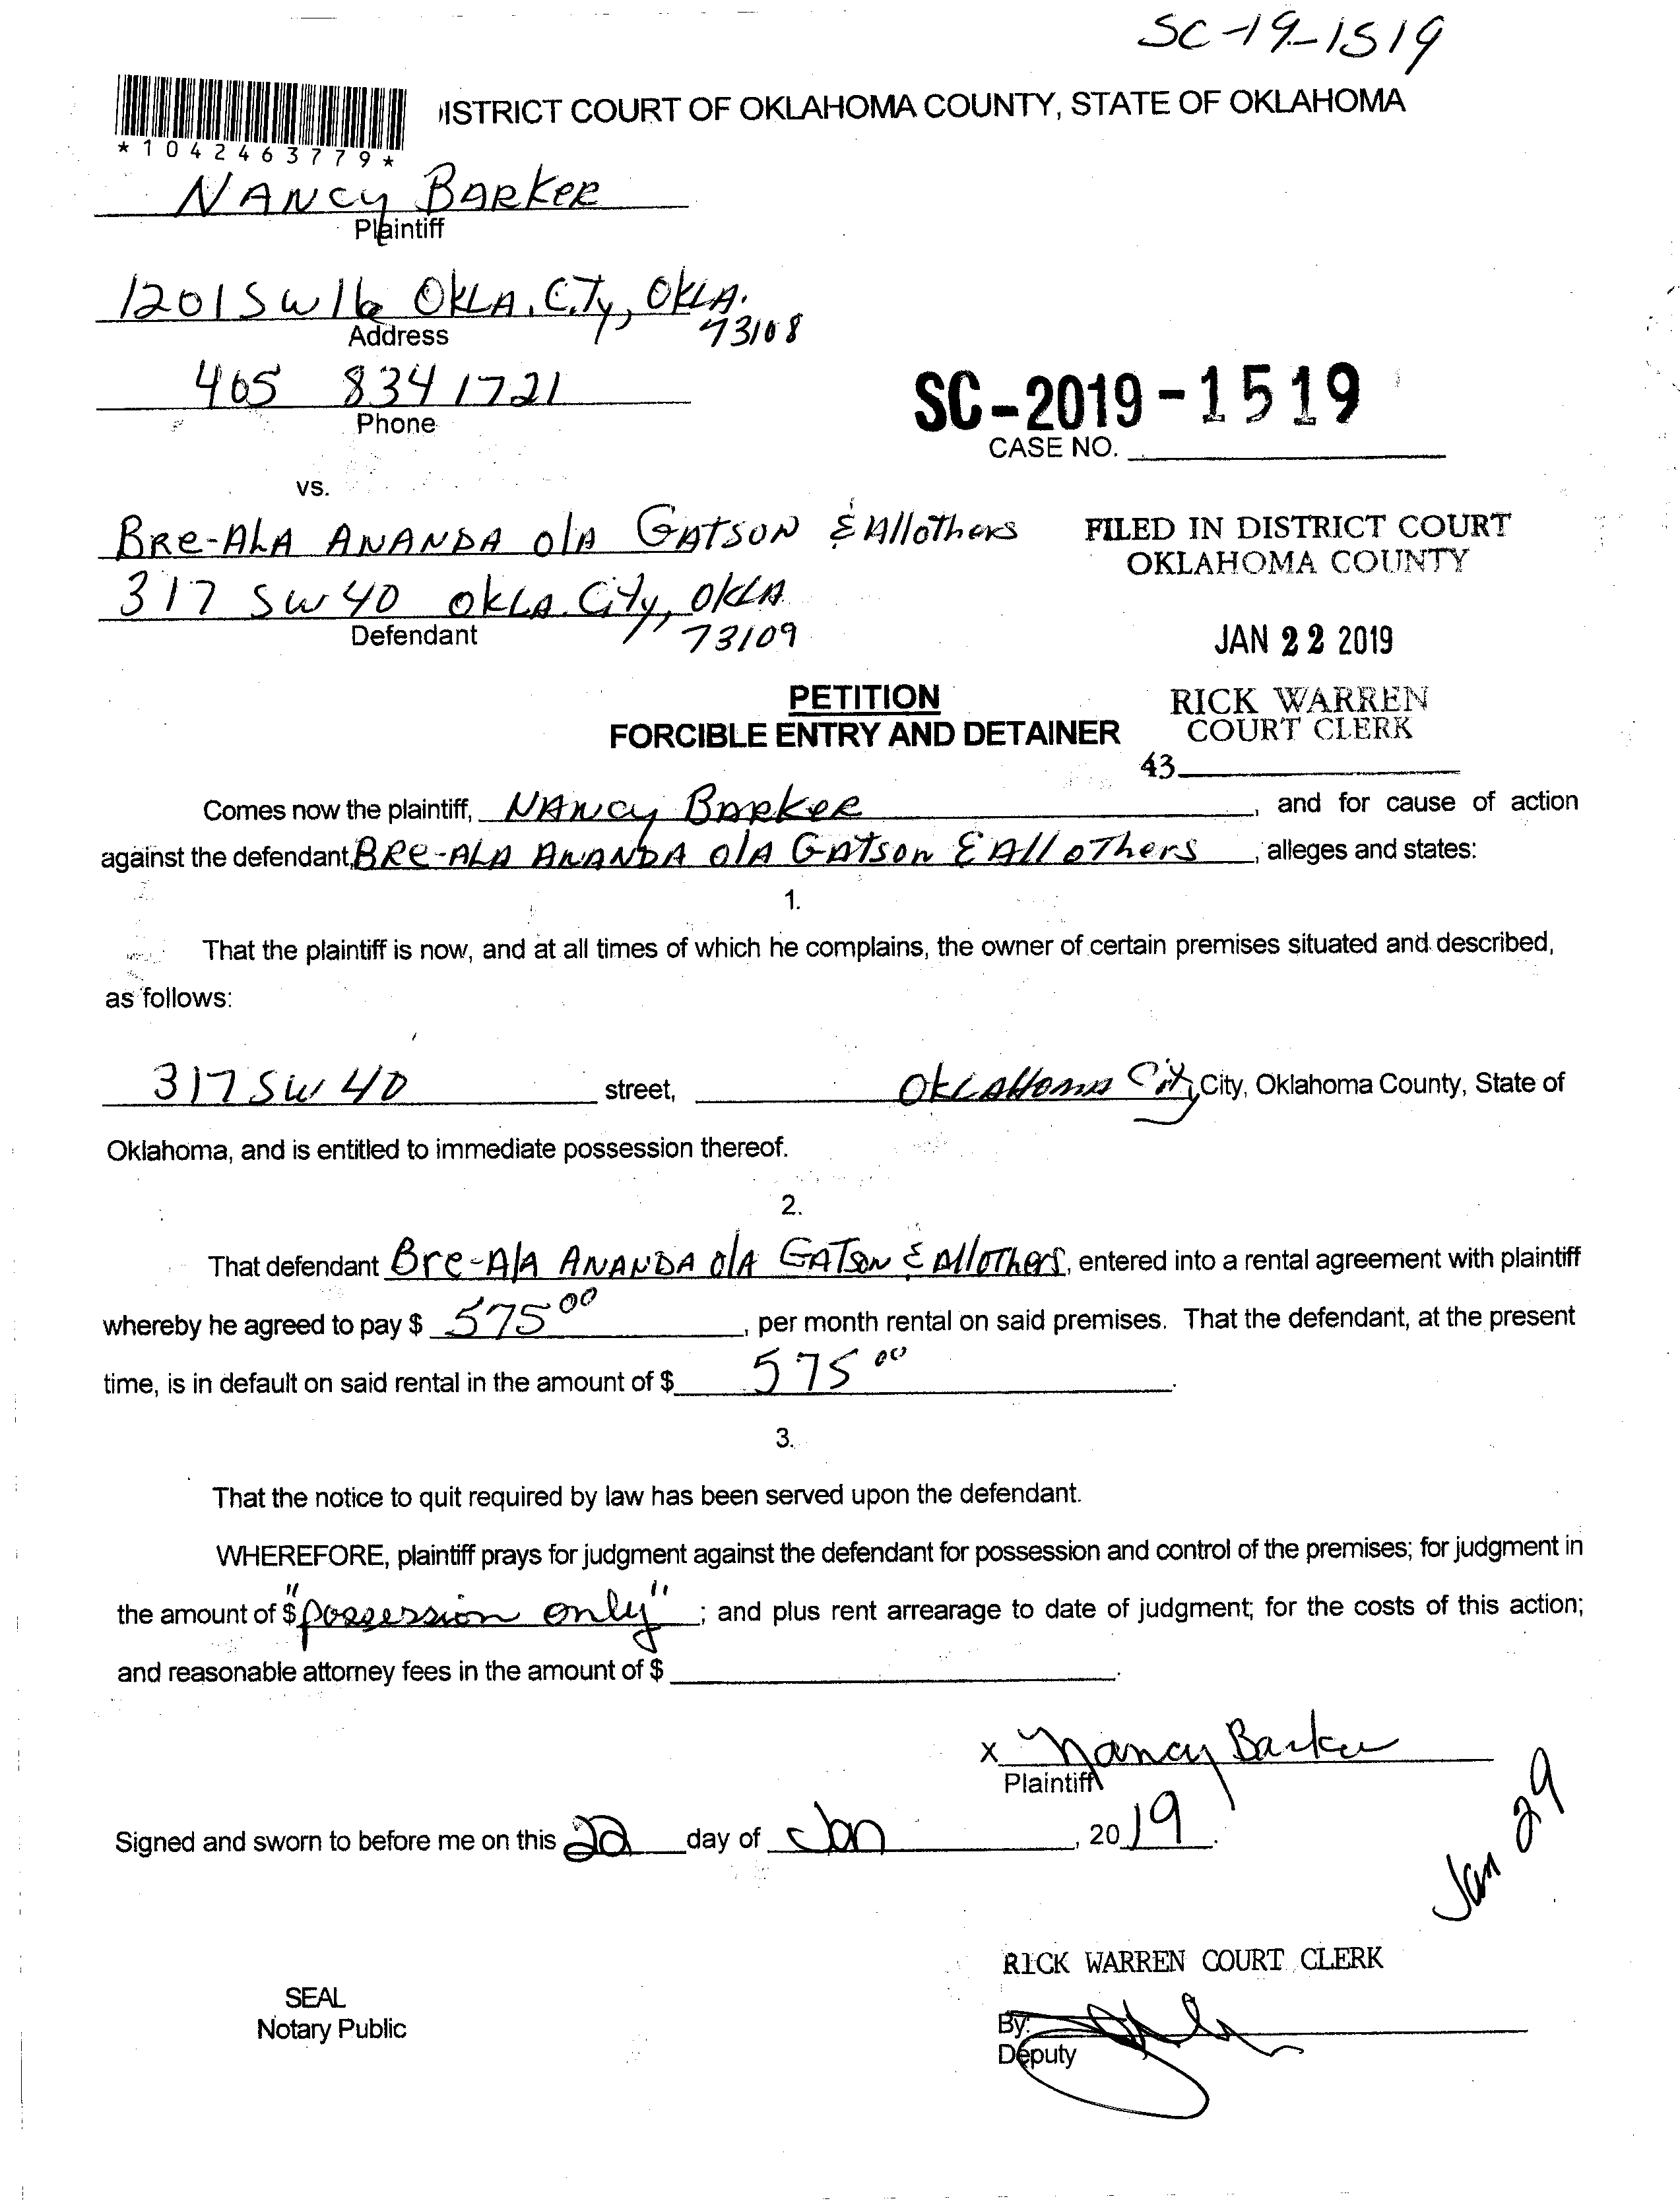 SC-19-1519
ISTRICT COURT OF OKLAHOMA COUNTY, STATE OF OKLAHOMA
*1042463779*
NANCY BARKER
Plaintiff
1201 SW 16 OKLA. CITy, OKLA.
73108
Address
405 834 1721
Phone
SC-2019-1519
CASE NO.
vs.
BRe-ALA ANANDA o/A GATSON & All others
317 SW 40 OKLA. City, OKLA
73109
Defendant
FILED IN DISTRICT COURT
OKLAHOMA COUNTY
JAN 22 2019
RICK WARREN
COURT CLERK
43
PETITION
FORCIBLE ENTRY AND DETAINER
Comes now the plaintiff, NANCY BARKER, and for cause of action
against the defendant, BRe-ALA ANANDA o/A GATSON & All oThers, alleges and states:
1.
That the plaintiff is now, and at all times of which he complains, the owner of certain premises situated and described,
as follows:
317 SW 40 street, OKLAHOMA City City, Oklahoma County, State of
Oklahoma, and is entitled to immediate possession thereof.
2.
That defendant Bre-AlA ANANDA o/A GATSON & All oThers, entered into a rental agreement with plaintiff
whereby he agreed to pay $ 575 00, per month rental on said premises. That the defendant, at the present
time, is in default on said rental in the amount of $ 575 00.
3.
That the notice to quit required by law has been served upon the defendant.
WHEREFORE, plaintiff prays for judgment against the defendant for possession and control of the premises; for judgment in
the amount of $ "possession only"; and plus rent arrearage to date of judgment; for the costs of this action;
and reasonable attorney fees in the amount of $ .
x Nancy Barker
Plaintiff
Signed and sworn to before me on this 22 day of Jan, 2019.
Jan 29
RICK WARREN COURT CLERK
SEAL
Notary Public
By:
Deputy